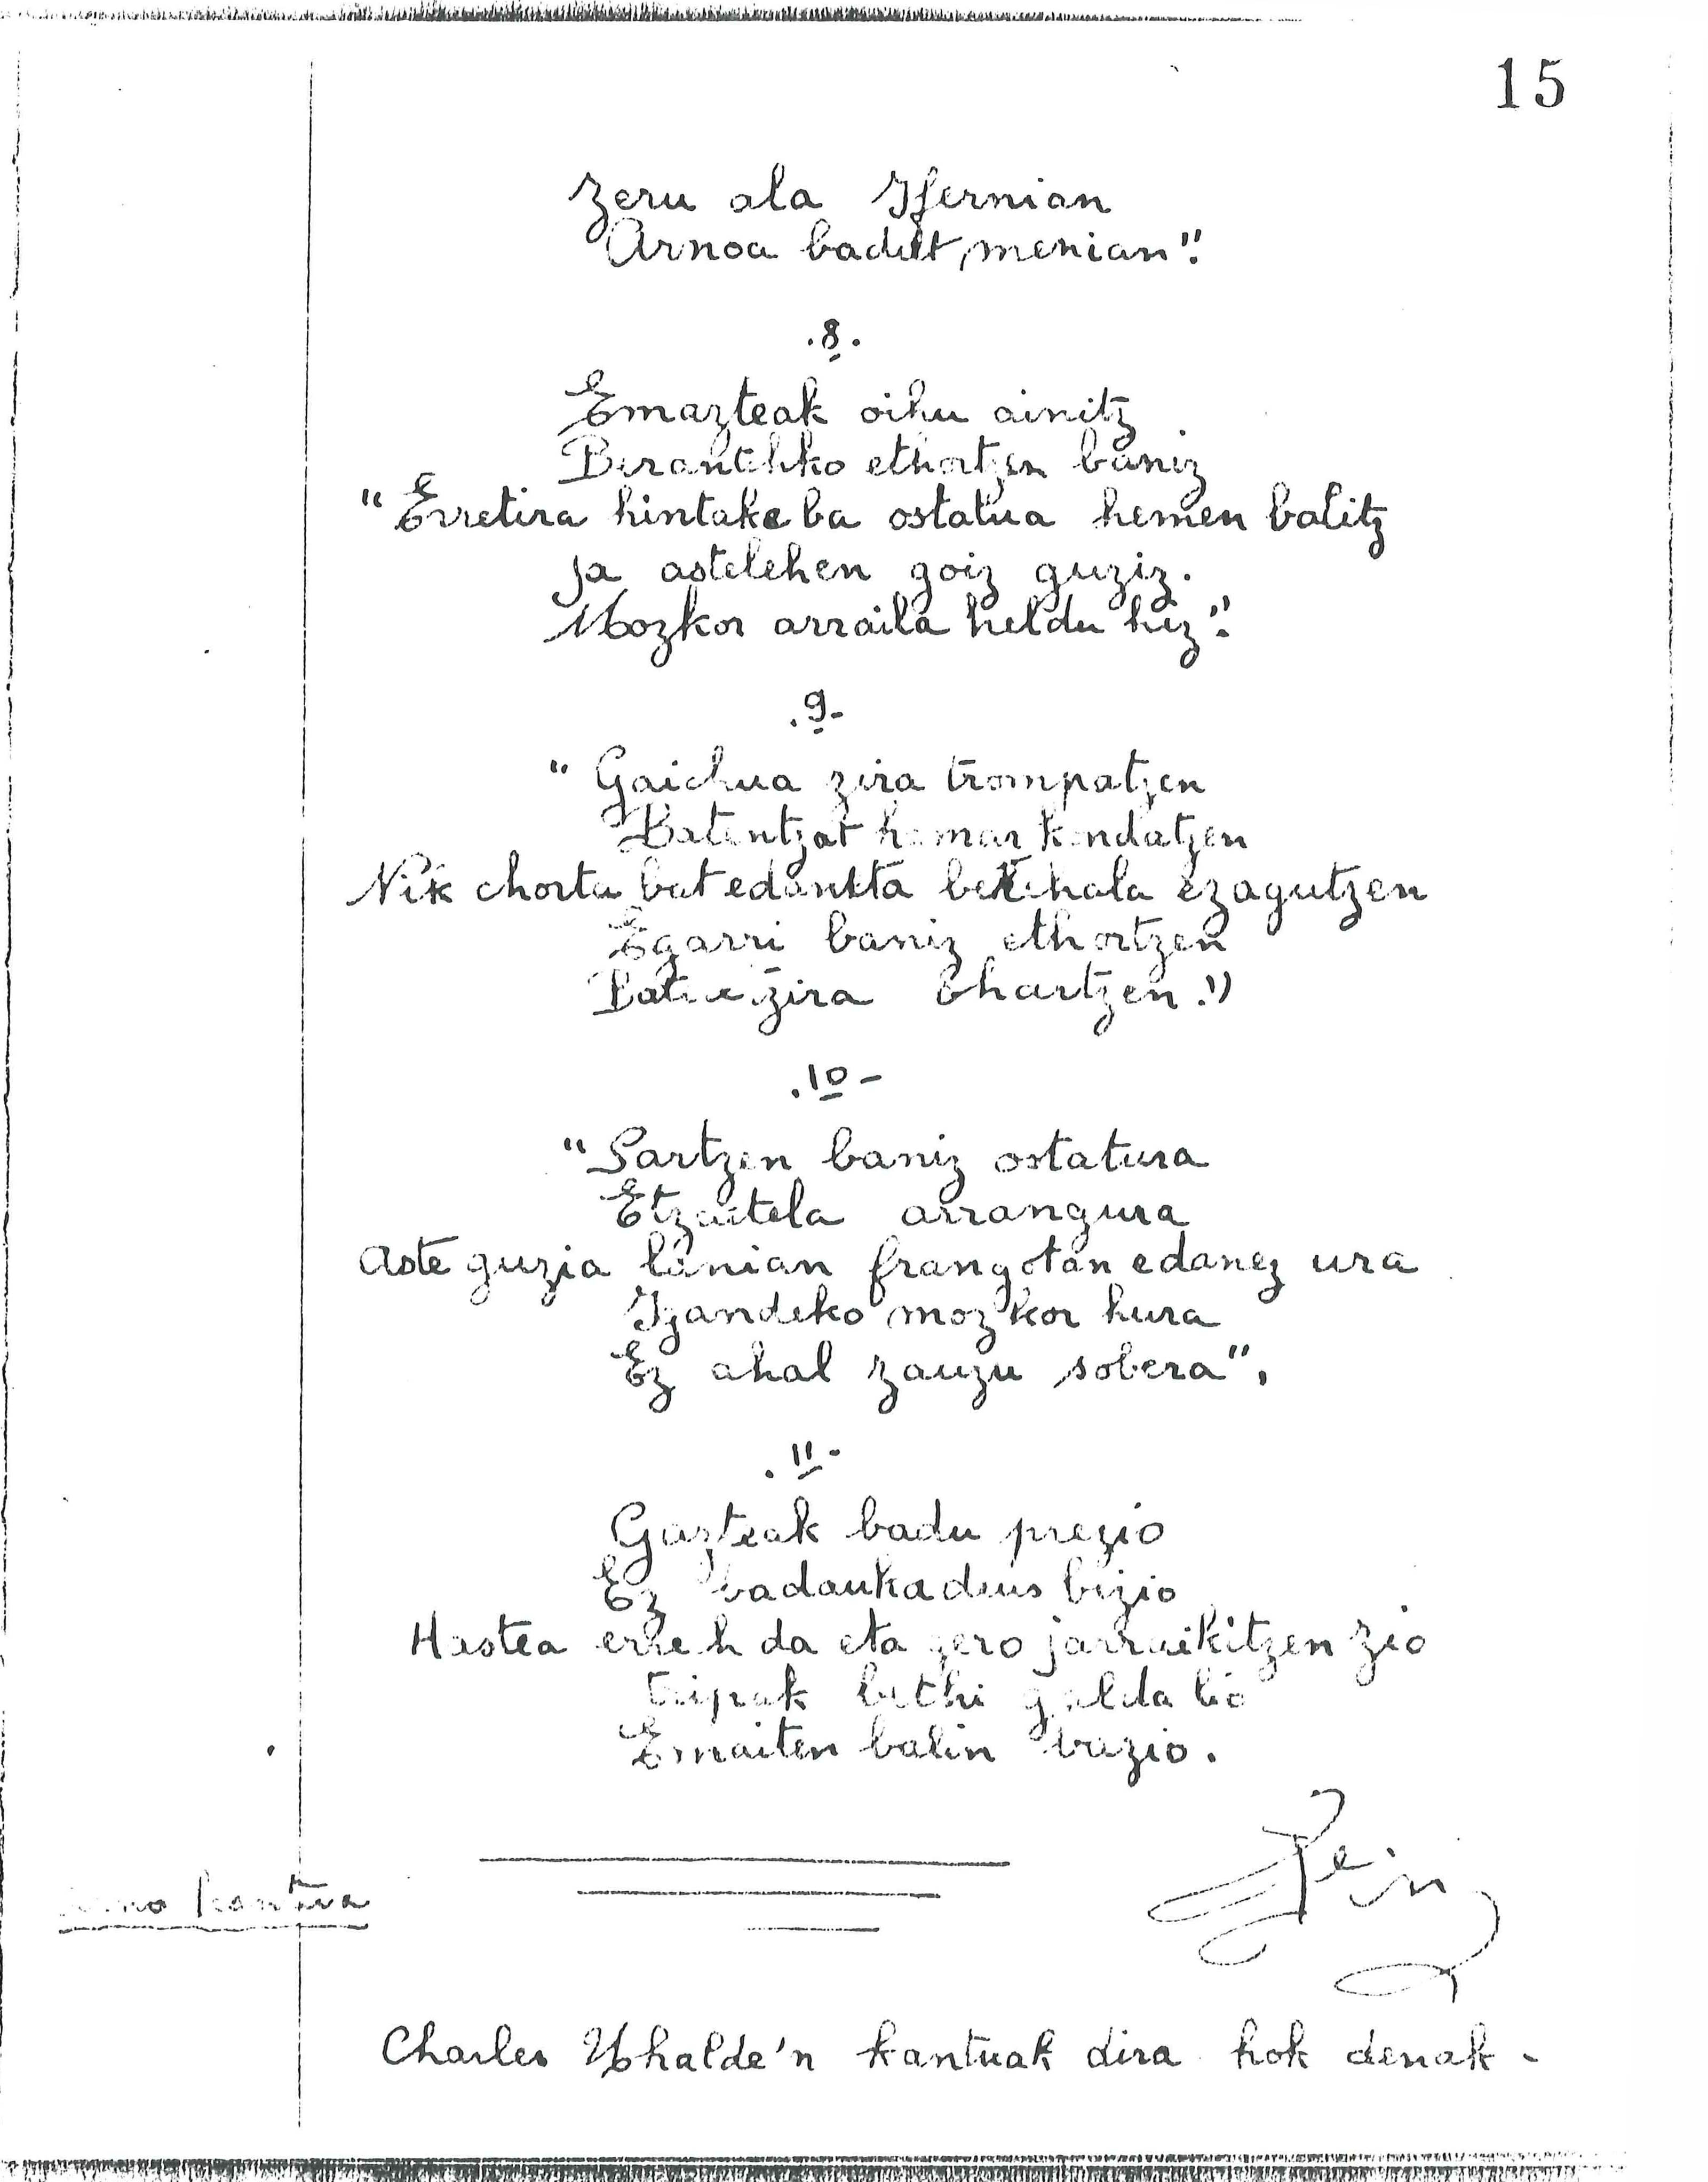 15
Zeru ala Ifernian
Arnoa badut, menian".
.8.
Emazteak oihu ainitz
Berantchko ethortzen baniz
"Erretira hintake ba ostatua hemen balitz
Ja astelehen goiz guziz.
Mozkor arraila heldu hiz".
.9-
" Gaichua zira trompatzen
Batentzat hamar kondatzen
Nik chorta bat edan eta berehala ezagutzen
Egarri baniz ethortzen
zira ohartzen."
.10-
"Sartzen baniz ostatura
Etzaitela arrangura
Aste guzia lanian frangotan edanez ura
Igandeko mozkor hura
Ez ahal zauzu sobera".
.11-
Gazteak badu prezio
Ez badauka deus bizio
Hastea errech da eta gero jarraikitzen zio
tripak bethi galda lio
Emaiten balin bazio.
Fin
kantua
Charles Uhalde'n kantuak dira hok denak -